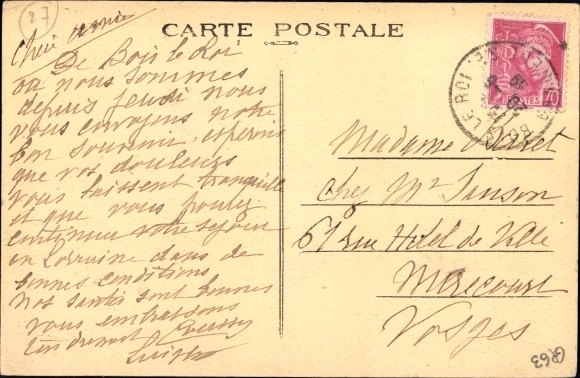 27
CARTE POSTALE
Chère amie
De Bois le Roi
où nous sommes
depuis jeudi nous
vous envoyons notre
bon souvenir, espérons
que vos douleurs
vous laissent tranquille
et que vous pouvez
continuer votre séjour
en Lorraine dans de
bonnes conditions
Nos santés sont bonnes
vous embrassons
tendrement
POSTES 70
LE ROI
Madame
chez Mr Janson
61 rue Hotel de Ville
Mirecourt
Vosges
GR63